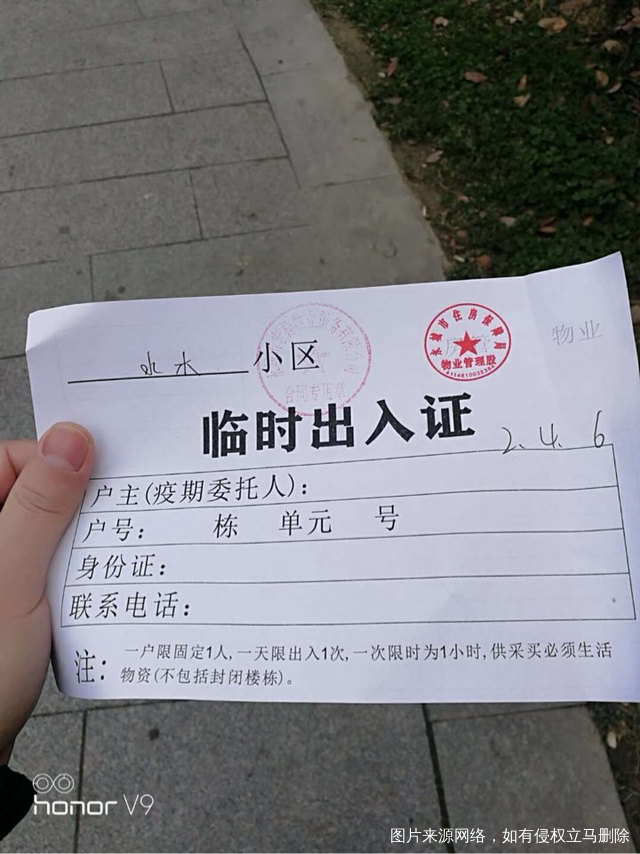 小区
物业
永城市住房保障局
物业管理股
4114810035394
合同专用章
临时出入证
2.4.6
户主(疫期委托人):
户号: 栋 单元 号
身份证:
联系电话:
注: 一户限固定1人,一天限出入1次,一次限时为1小时,供采买必须生活
物资(不包括封闭楼栋)。
honor V9
图片来源网络，如有侵权立马删除